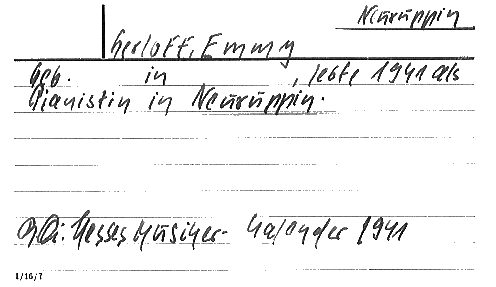 Neuruppin
Gerloff, Emmy
Geb. in , lebte 1941 als
Pianistin in Neuruppin.
Qu: Hesses Musiker-Kalender 1941
1/16/7